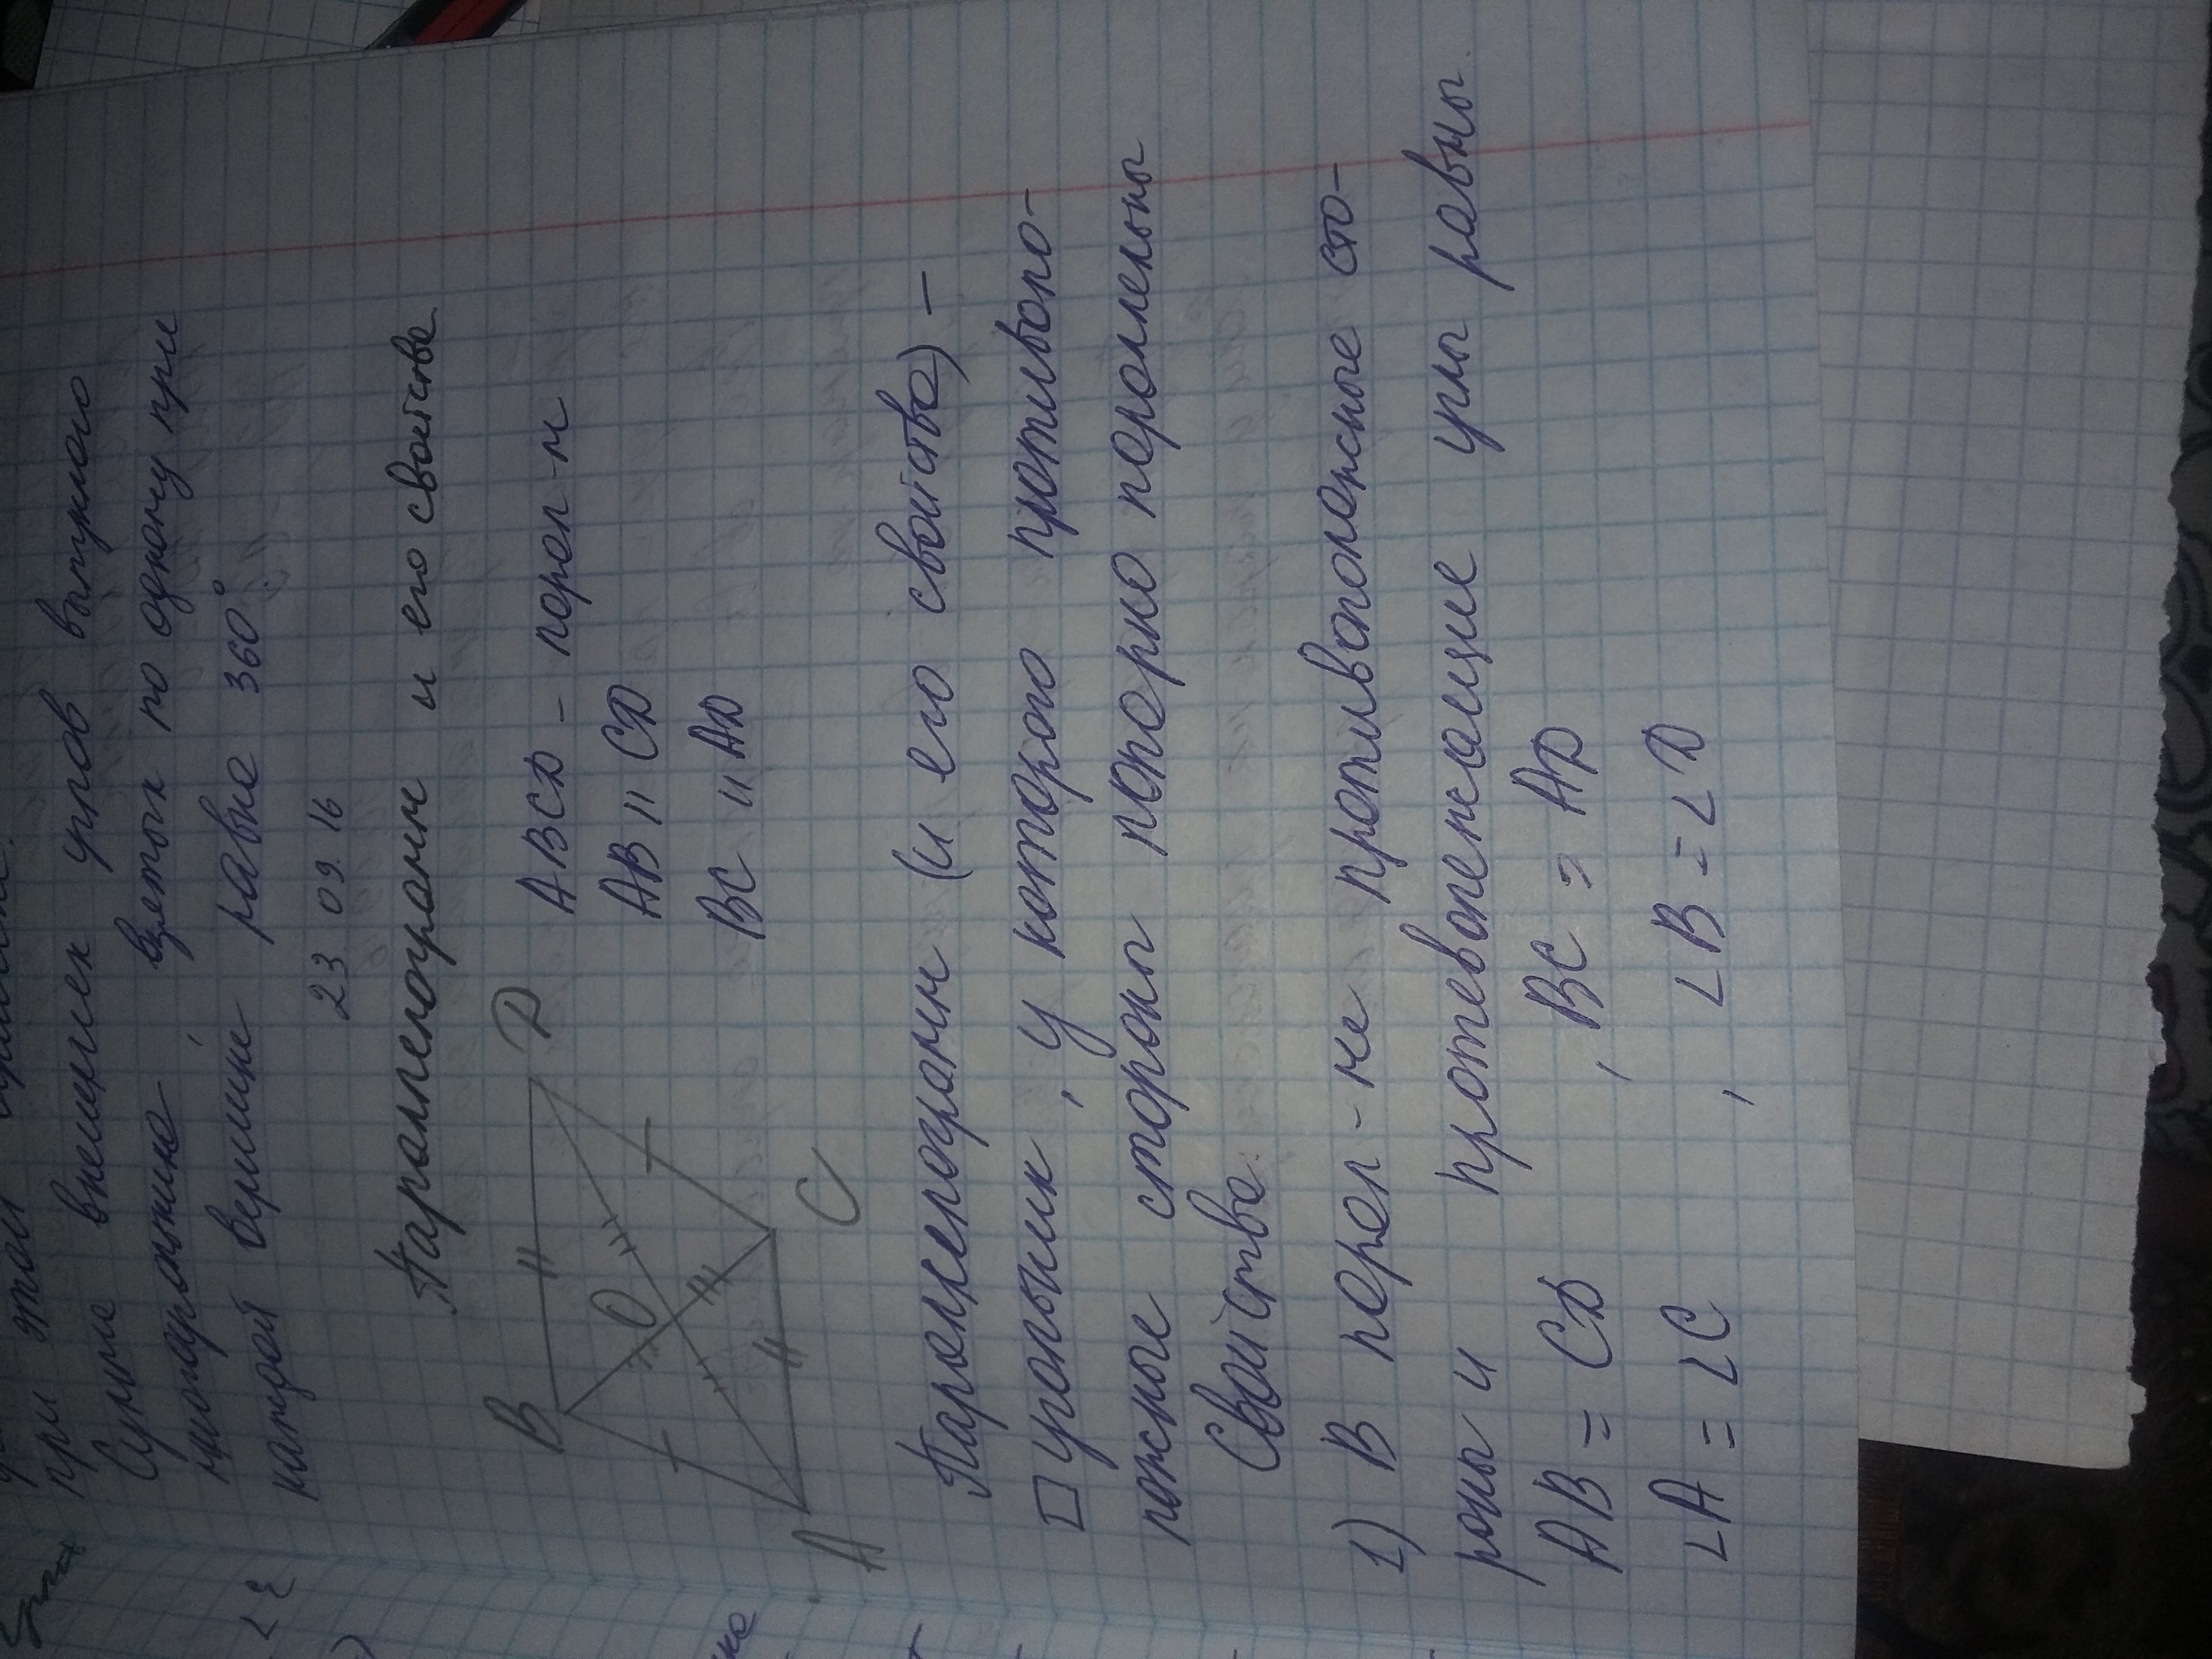 при этой
при внешних углов выпуклого
Суронние взятых по одному при
каждой вершине равне 360°.
23 09 16
Параллелограмм и его свойства
B
D
O
A
C
ABCD - парал-м
AB || CD
BC || AD
Параллелограмм (и его свойства) -
□ угольник, у которого противопо-
ложные стороны попарно паралельны
Свойства.
1) В парал-ме противоположные сто-
роны и противолежащие углы равны.
AB = CD , BC = AD
∠A = ∠C , ∠B = ∠D